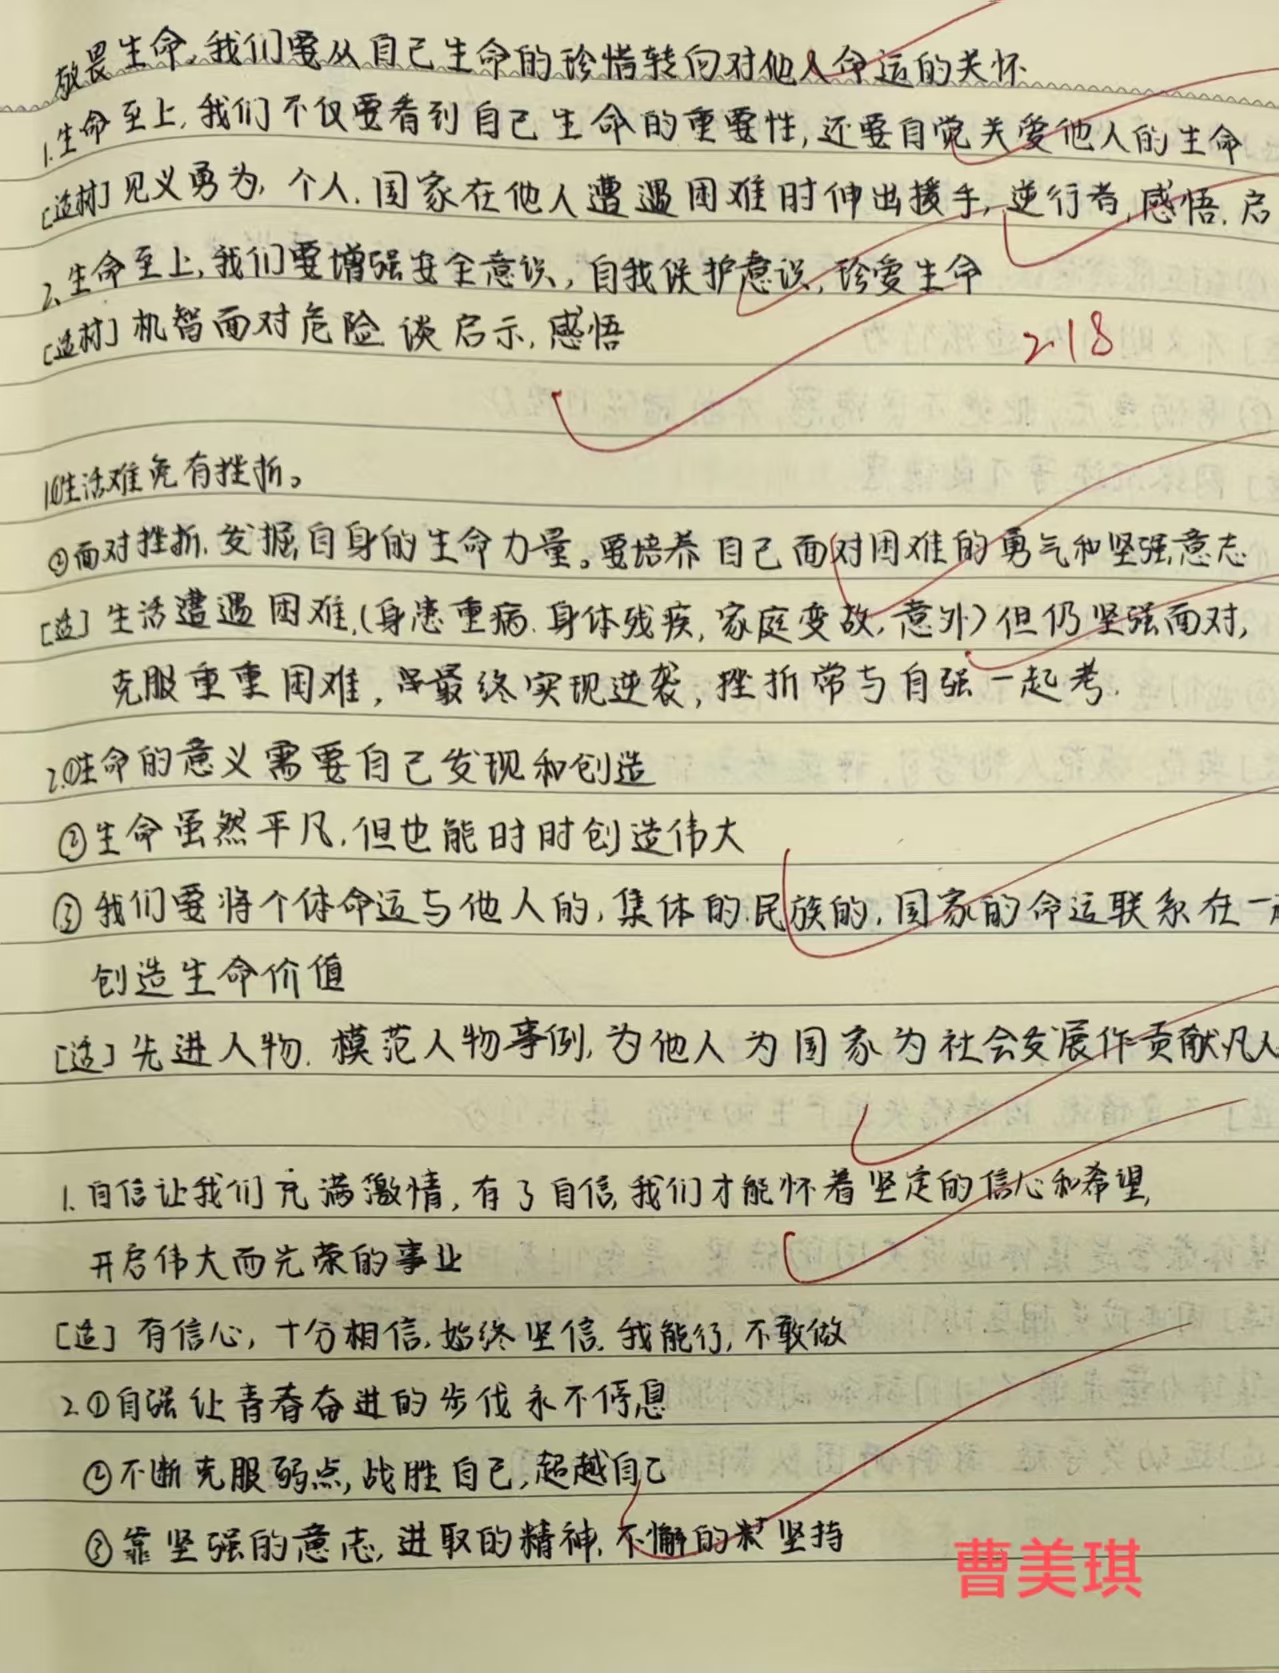 敬畏生命,我们要从自己生命的珍惜转向对他人命运的关怀
1.生命至上,我们不仅要看到自己生命的重要性,还要自觉关爱他人的生命
[适材]见义勇为,个人.国家在他人遭遇困难时伸出援手,逆行者,感悟.启
2.生命至上,我们要增强安全意识,自我保护意识,珍爱生命
[适材]机智面对危险 谈启示,感悟
2.18
1.①生活难免有挫折。
②面对挫折,发掘自身的生命力量。要培养自己面对困难的勇气和坚强意志
[适]生活遭遇困难,(身患重病.身体残疾,家庭变故,意外)但仍坚强面对,
克服重重困难,最终实现逆袭,挫折常与自强一起考.
2.①生命的意义需要自己发现和创造
②生命虽然平凡,但也能时时创造伟大
③我们要将个体命运与他人的,集体的.民族的,国家的命运联系在一
创造生命价值
[适]先进人物.模范人物事例,为他人为国家为社会发展作贡献凡人
1.自信让我们充满激情,有了自信,我们才能怀着坚定的信心和希望,
开启伟大而光荣的事业
[适]有信心,十分相信,始终坚信.我能行,不敢做
2.①自强让青春奋进的步伐永不停息
②不断克服弱点,战胜自己,超越自己
③靠坚强的意志,进取的精神,不懈的坚持
曹美琪